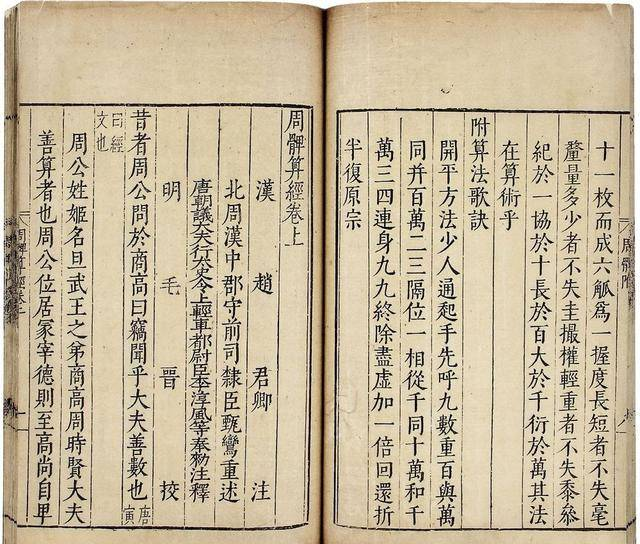 十一枚而成六觚爲一握度長短者不失毫
釐量多少者不失圭撮權輕重者不失黍絫
紀於一協於十長於百大於千衍於萬其法
在算術乎
附算法歌訣
開平方法少人通起手先呼九數重百與萬
同并百萬二三隔位一相從千同十萬和千
萬三四連身九九終除盡虛加一倍回還折
半復原宗
周髀算經卷上
漢 趙 君卿 注
北周漢中郡守前司隸臣甄鸞重述
唐朝議大夫行太史令上輕車都尉臣李淳風等奉勑注釋
明 毛 晉 挍
昔者周公問於商高曰竊聞乎大夫善數也
唐寅
曰經
文也
周公姓姬名旦武王之弟商高周時賢大夫
善算者也周公位居冢宰德則至高尚自卑